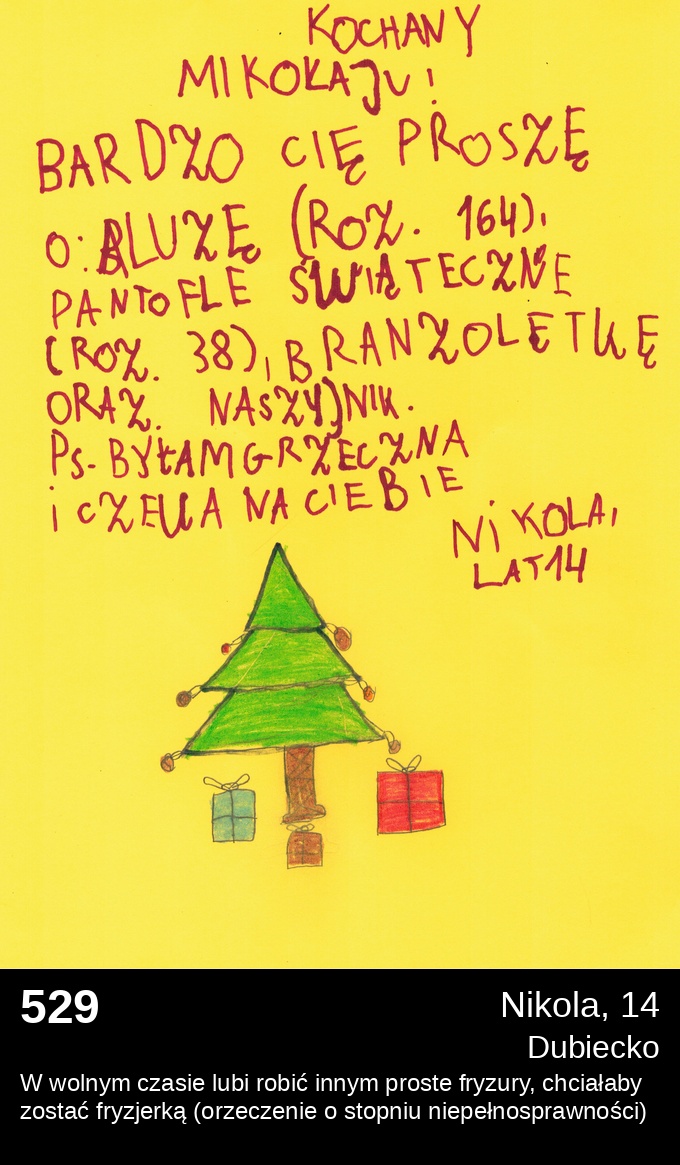 KOCHANY
MIKOŁAJU!
BARDZO CIĘ PROSZĘ
O: BLUZĘ (ROZ. 164),
PANTOFLE ŚWIĄTECZNE
(ROZ. 38), BRANZOLETKĘ
ORAZ. NASZYJNIK.
Ps. BYŁAM GRZECZNA
i CZEKA NA CIEBIE
NiKOLA,
LAT 14
529
Nikola, 14
Dubiecko
W wolnym czasie lubi robić innym proste fryzury, chciałaby
zostać fryzjerką (orzeczenie o stopniu niepełnosprawności)